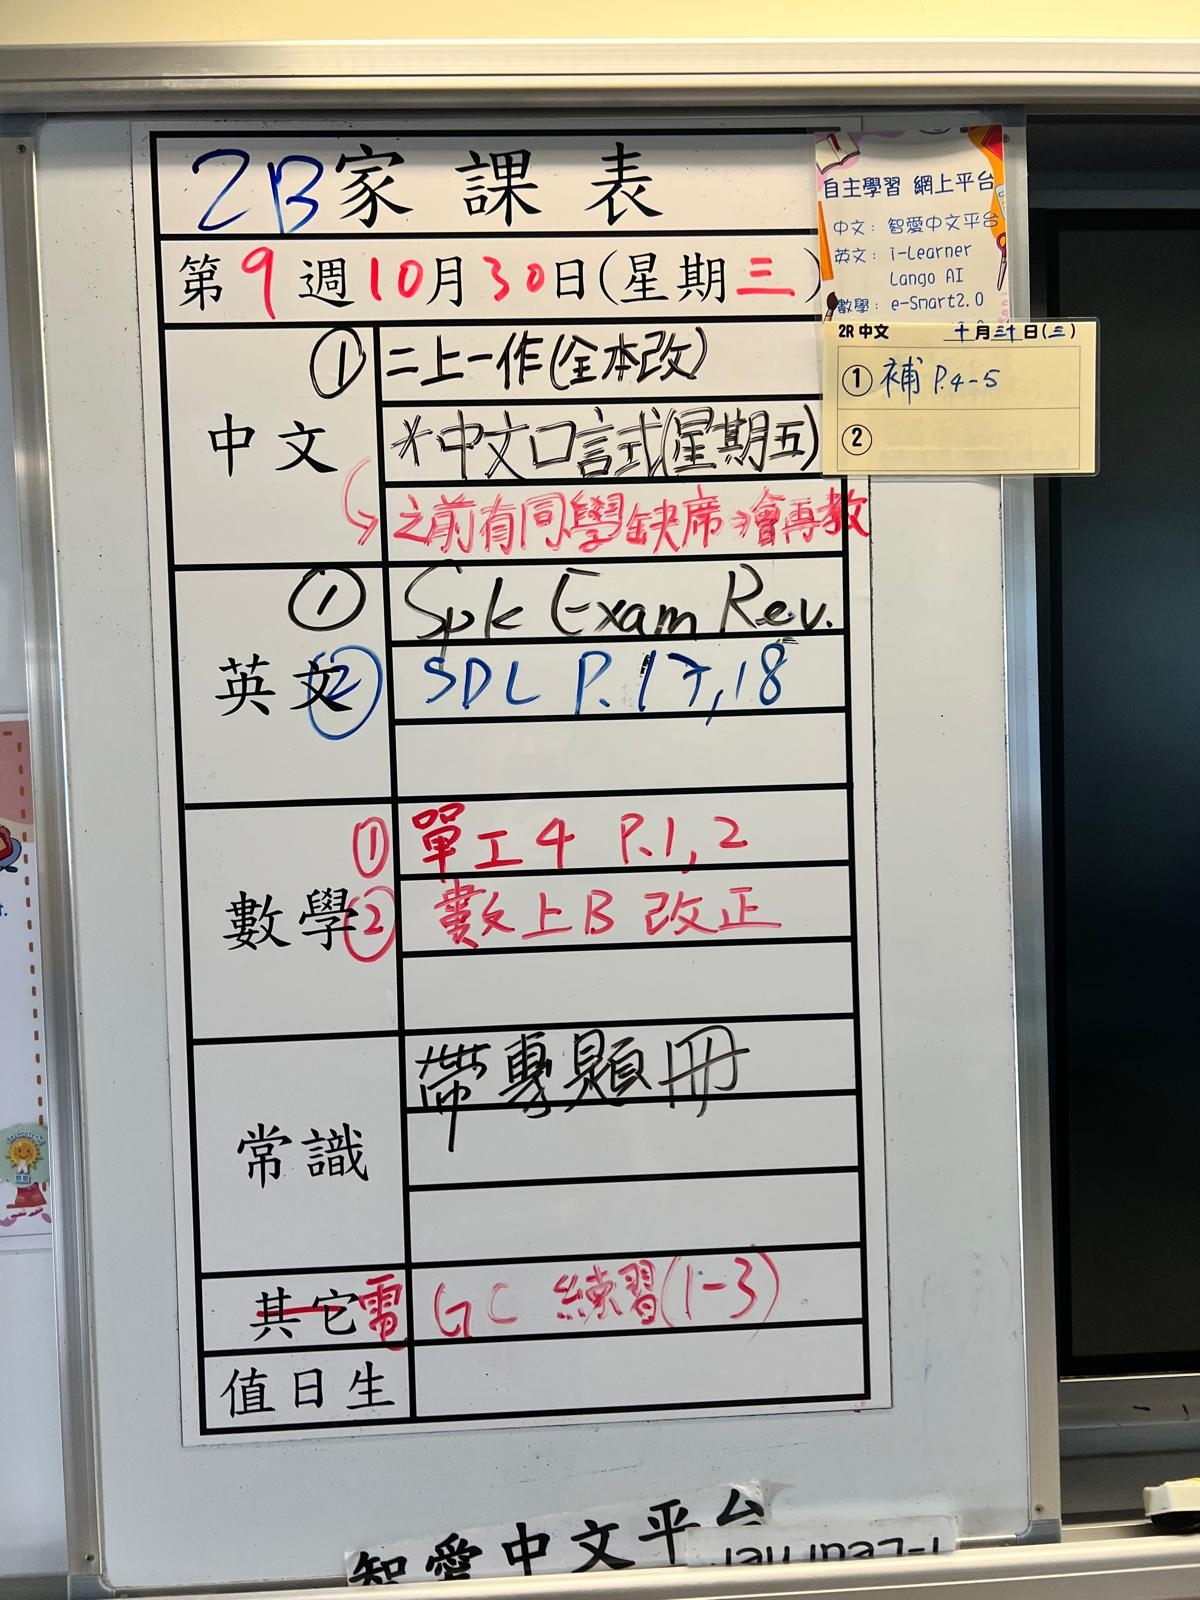 2B家課表
第9週10月30日(星期三)
中文
① 二上一作(全本改)
*中文口試(星期五)
之前有同學缺席,會再教
英文
① Spk Exam Rev.
② SDL P.17,18
數學
① 單工4 P.1,2
② 數上B 改正
常識
帶專題冊
其它電 GC 練習(1-3)
值日生
自主學習 網上平台
中文: 智愛中文平台
英文: i-Learner
Lango AI
數學: e-Smart2.0
2R 中文 十月三十日(三)
① 補 P.4-5
②
智愛中文平台
i-Learner